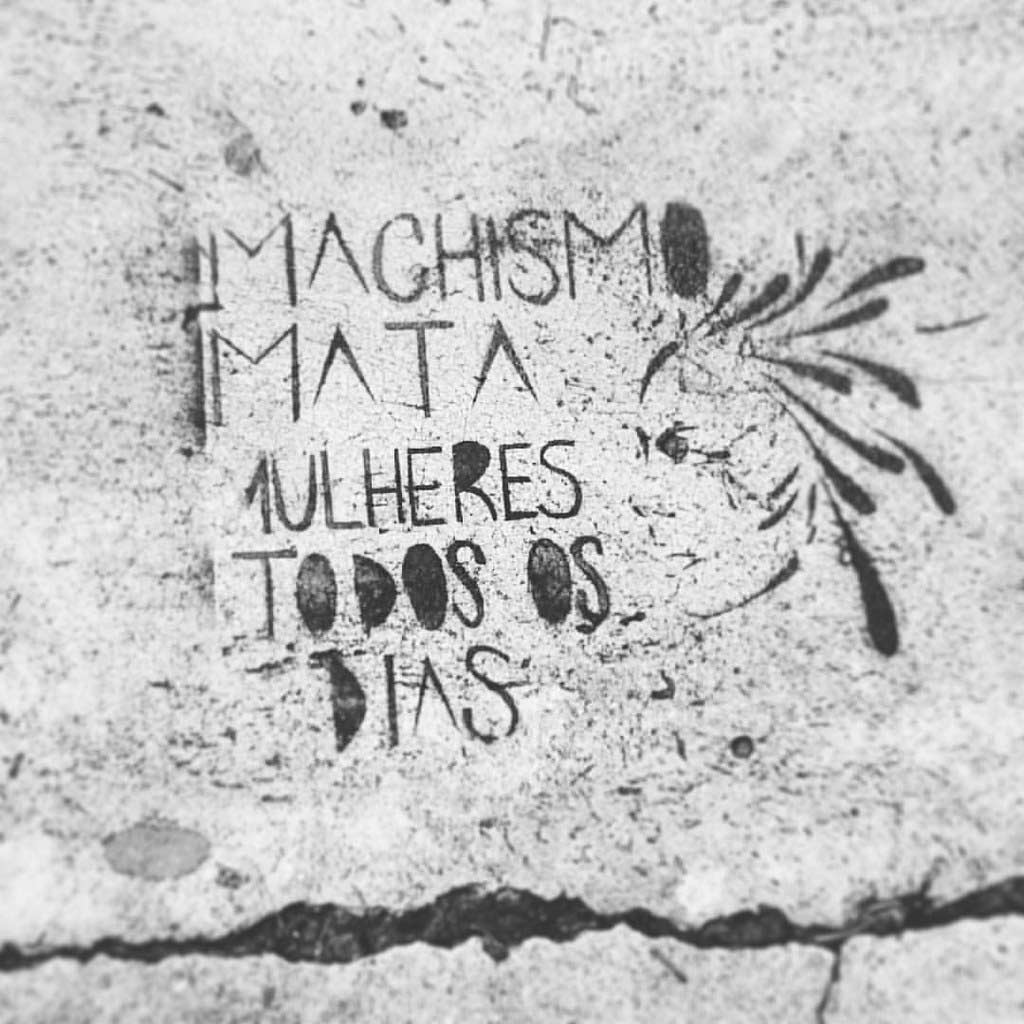 MACHISMO
MATA
MULHERES
TODOS OS
DIAS